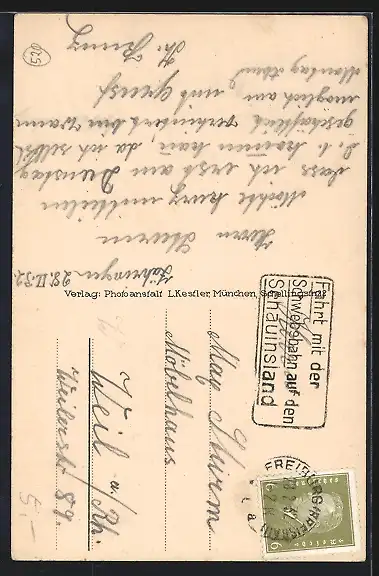 Zähringen 28.II.32.
Herrn Sturm
Möchte kurz mitteilen
dass ich erst am Dienstag
z. b. kommen kann, da ich selbst
geschäftlich verhindert bin wenn
möglich am
Montag Abend
mit Gruss
520
Verlag: Photoanstalt L. Kestler, München, Schellingstraße
Fahrt mit der
Schwebebahn auf den
Schauinsland
FREIBURG (BREISGAU)
Deutsches Reich
6
6
Max Sturm
Möbelhaus
Weil a/Rh.
Weilerstr 89.
5.-